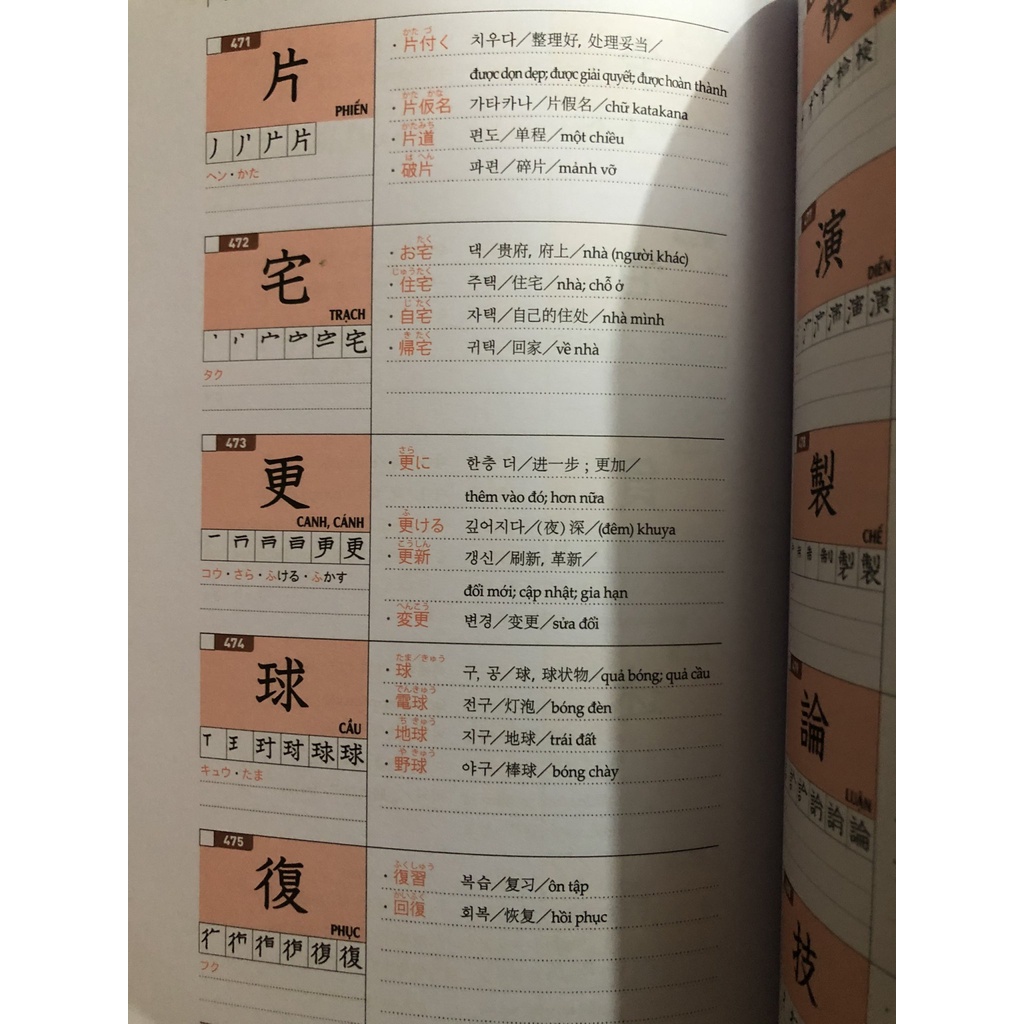 471
片
PHIẾN
ヘン・かた
かた づ
・片付く 치우다／整理好, 处理妥当／
được dọn dẹp; được giải quyết; được hoàn thành
かた かな
・片仮名 가타카나／片假名／chữ katakana
かたみち
・片道 편도／单程／một chiều
は へん
・破片 파편／碎片／mảnh vỡ
472
宅
TRẠCH
タク
たく
・お宅 댁／贵府, 府上／nhà (người khác)
じゅうたく
・住宅 주택／住宅／nhà; chỗ ở
じ たく
・自宅 자택／自己的住处／nhà mình
き たく
・帰宅 귀택／回家／về nhà
473
更
CANH, CÁNH
コウ・さら・ふける・ふかす
さら
・更に 한층 더／进一步；更加／
thêm vào đó; hơn nữa
ふ
・更ける 깊어지다／(夜) 深／(đêm) khuya
こうしん
・更新 갱신／刷新, 革新／
đổi mới; cập nhật; gia hạn
へんこう
・変更 변경／变更／sửa đổi
474
球
CẦU
キュウ・たま
たま／きゅう
・球 구, 공／球, 球状物／quả bóng; quả cầu
でんきゅう
・電球 전구／灯泡／bóng đèn
ち きゅう
・地球 지구／地球／trái đất
や きゅう
・野球 야구／棒球／bóng chày
475
復
PHỤC
フク
ふくしゅう
・復習 복습／复习／ôn tập
かいふく
・回復 회복／恢复／hồi phục
演
DIỄN
製
CHẾ
論
LUẬN
技